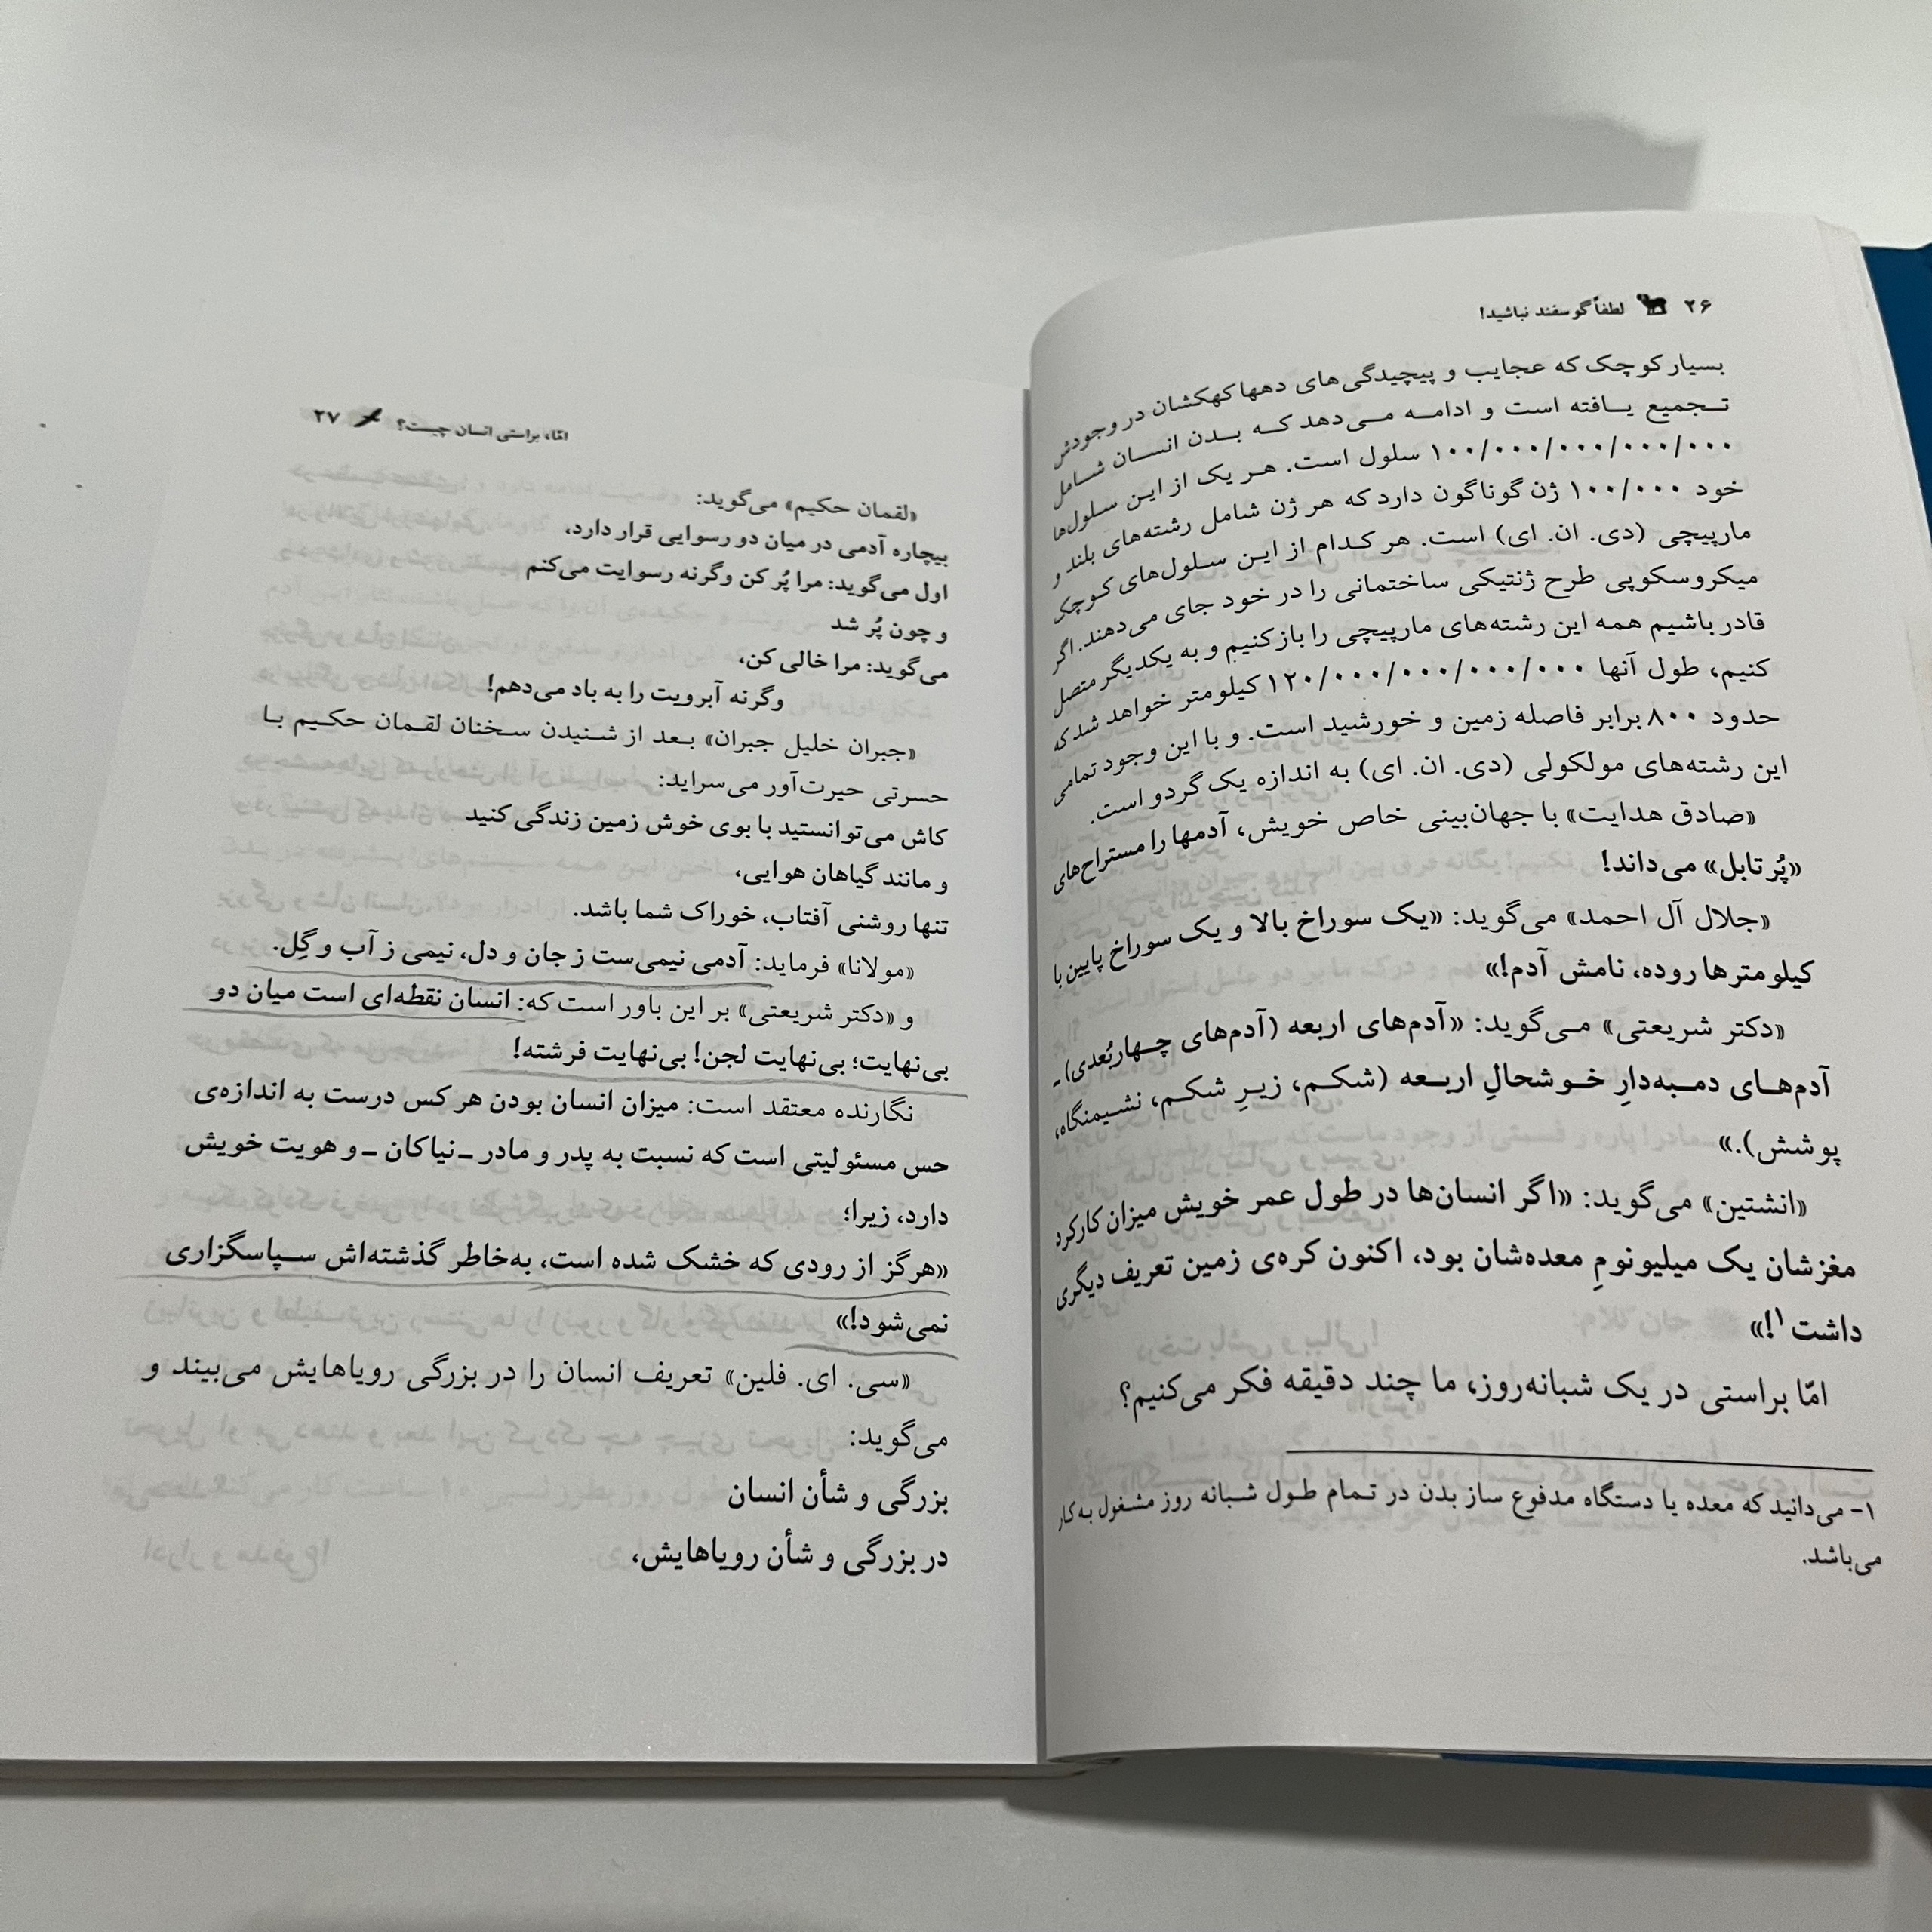 ۲۶ لطفاً گوسفند نباشید!
بسیار کوچک که عجایب و پیچیدگی‌های دهها کهکشان در وجودش
تـجمیع یـافته است و ادامـه مـی‌دهد کـه بـدن انسـان شـامل
۱۰۰/۰۰۰/۰۰۰/۰۰۰/۰۰۰ سلول است. هـر یک از ایـن سـلول‌ها
خود ۱۰۰/۰۰۰ ژن گوناگون دارد که هر ژن شامل رشته‌های بلند و
مارپیچی (دی. ان. ای) است. هر کـدام از ایـن سـلول‌های کـوچک
میکروسکوپی طرح ژنتیکی ساختمانی را در خود جای می‌دهند. اگر
قادر باشیم همه این رشته‌های مارپیچی را باز کنیم و به یکدیگر متصل
کنیم، طول آنها ۱۲۰/۰۰۰/۰۰۰/۰۰۰/۰۰۰ کیلومتر خواهد شد که
حدود ۸۰۰ برابر فاصله زمین و خورشید است. و با این وجود تمامی
این رشته‌های مولکولی (دی. ان. ای) به اندازه یک گردو است.
«صادق هدایت» با جهان‌بینی خاص خویش، آدمها را مستراح‌های
«پُرتابل» می‌داند!
«جلال آل احمد» می‌گوید: «یک سوراخ بالا و یک سوراخ پایین با
کیلومترها روده، نامش آدم!»
«دکتر شریعتی» مـی‌گوید: «آدم‌های اربعه (آدم‌های چـهاربُعدی) ـ
آدم‌هـای دمـبه‌دارِ خـوشحالِ اربـعه (شکـم، زیـرِ شکـم، نشـیمنگاه،
پوشش).»
«انشتین» می‌گوید: «اگر انسان‌ها در طول عمر خویش میزان کارکرد
مغزشان یک میلیونومِ معده‌شان بود، اکنون کره‌ی زمین تعریف دیگری
داشت ۱!»
امّا براستی در یک شبانه‌روز، ما چند دقیقه فکر می‌کنیم؟
۱- می‌دانید که معده یا دستگاه مدفوع ساز بدن در تـمام طـول شـبانه روز مشـغول به کار
می‌باشد.
امّا، براستی انسان چیست؟ ۲۷
«لقمان حکیم» می‌گوید:
بیچاره آدمی در میان دو رسوایی قرار دارد،
اول می‌گوید: مرا پُر کن وگرنه رسوایت می‌کنم
و چون پُر شد
می‌گوید: مرا خالی کن،
وگرنه آبرویت را به باد می‌دهم!
«جبران خلیل جبران» بـعد از شـنیدن سـخنان لقـمان حکـیم بـا
حسرتی حیرت‌آور می‌سراید:
کاش می‌توانستید با بوی خوش زمین زندگی کنید
و مانند گیاهان هوایی،
تنها روشنی آفتاب، خوراک شما باشد.
«مولانا» فرماید: آدمی نیمی‌ست ز جان و دل، نیمی ز آب و گِل.
و «دکتر شریعتی» بر این باور است که: انسان نقطه‌ای است میان دو
بی‌نهایت؛ بی‌نهایت لجن! بی‌نهایت فرشته!
نگارنده معتقد است: میزان انسان بودن هر کس درست به اندازه‌ی
حس مسئولیتی است که نسبت به پدر و مادر ـ نیاکان ـ و هویت خویش
دارد، زیرا؛
«هرگز از رودی که خشک شده است، به‌خاطر گذشته‌اش سـپاسگزاری
نمی‌شود!»
«سی. ای. فلین» تعریف انسان را در بزرگی رویاهایش می‌بیند و
می‌گوید:
بزرگی و شأن انسان
در بزرگی و شأن رویاهایش،